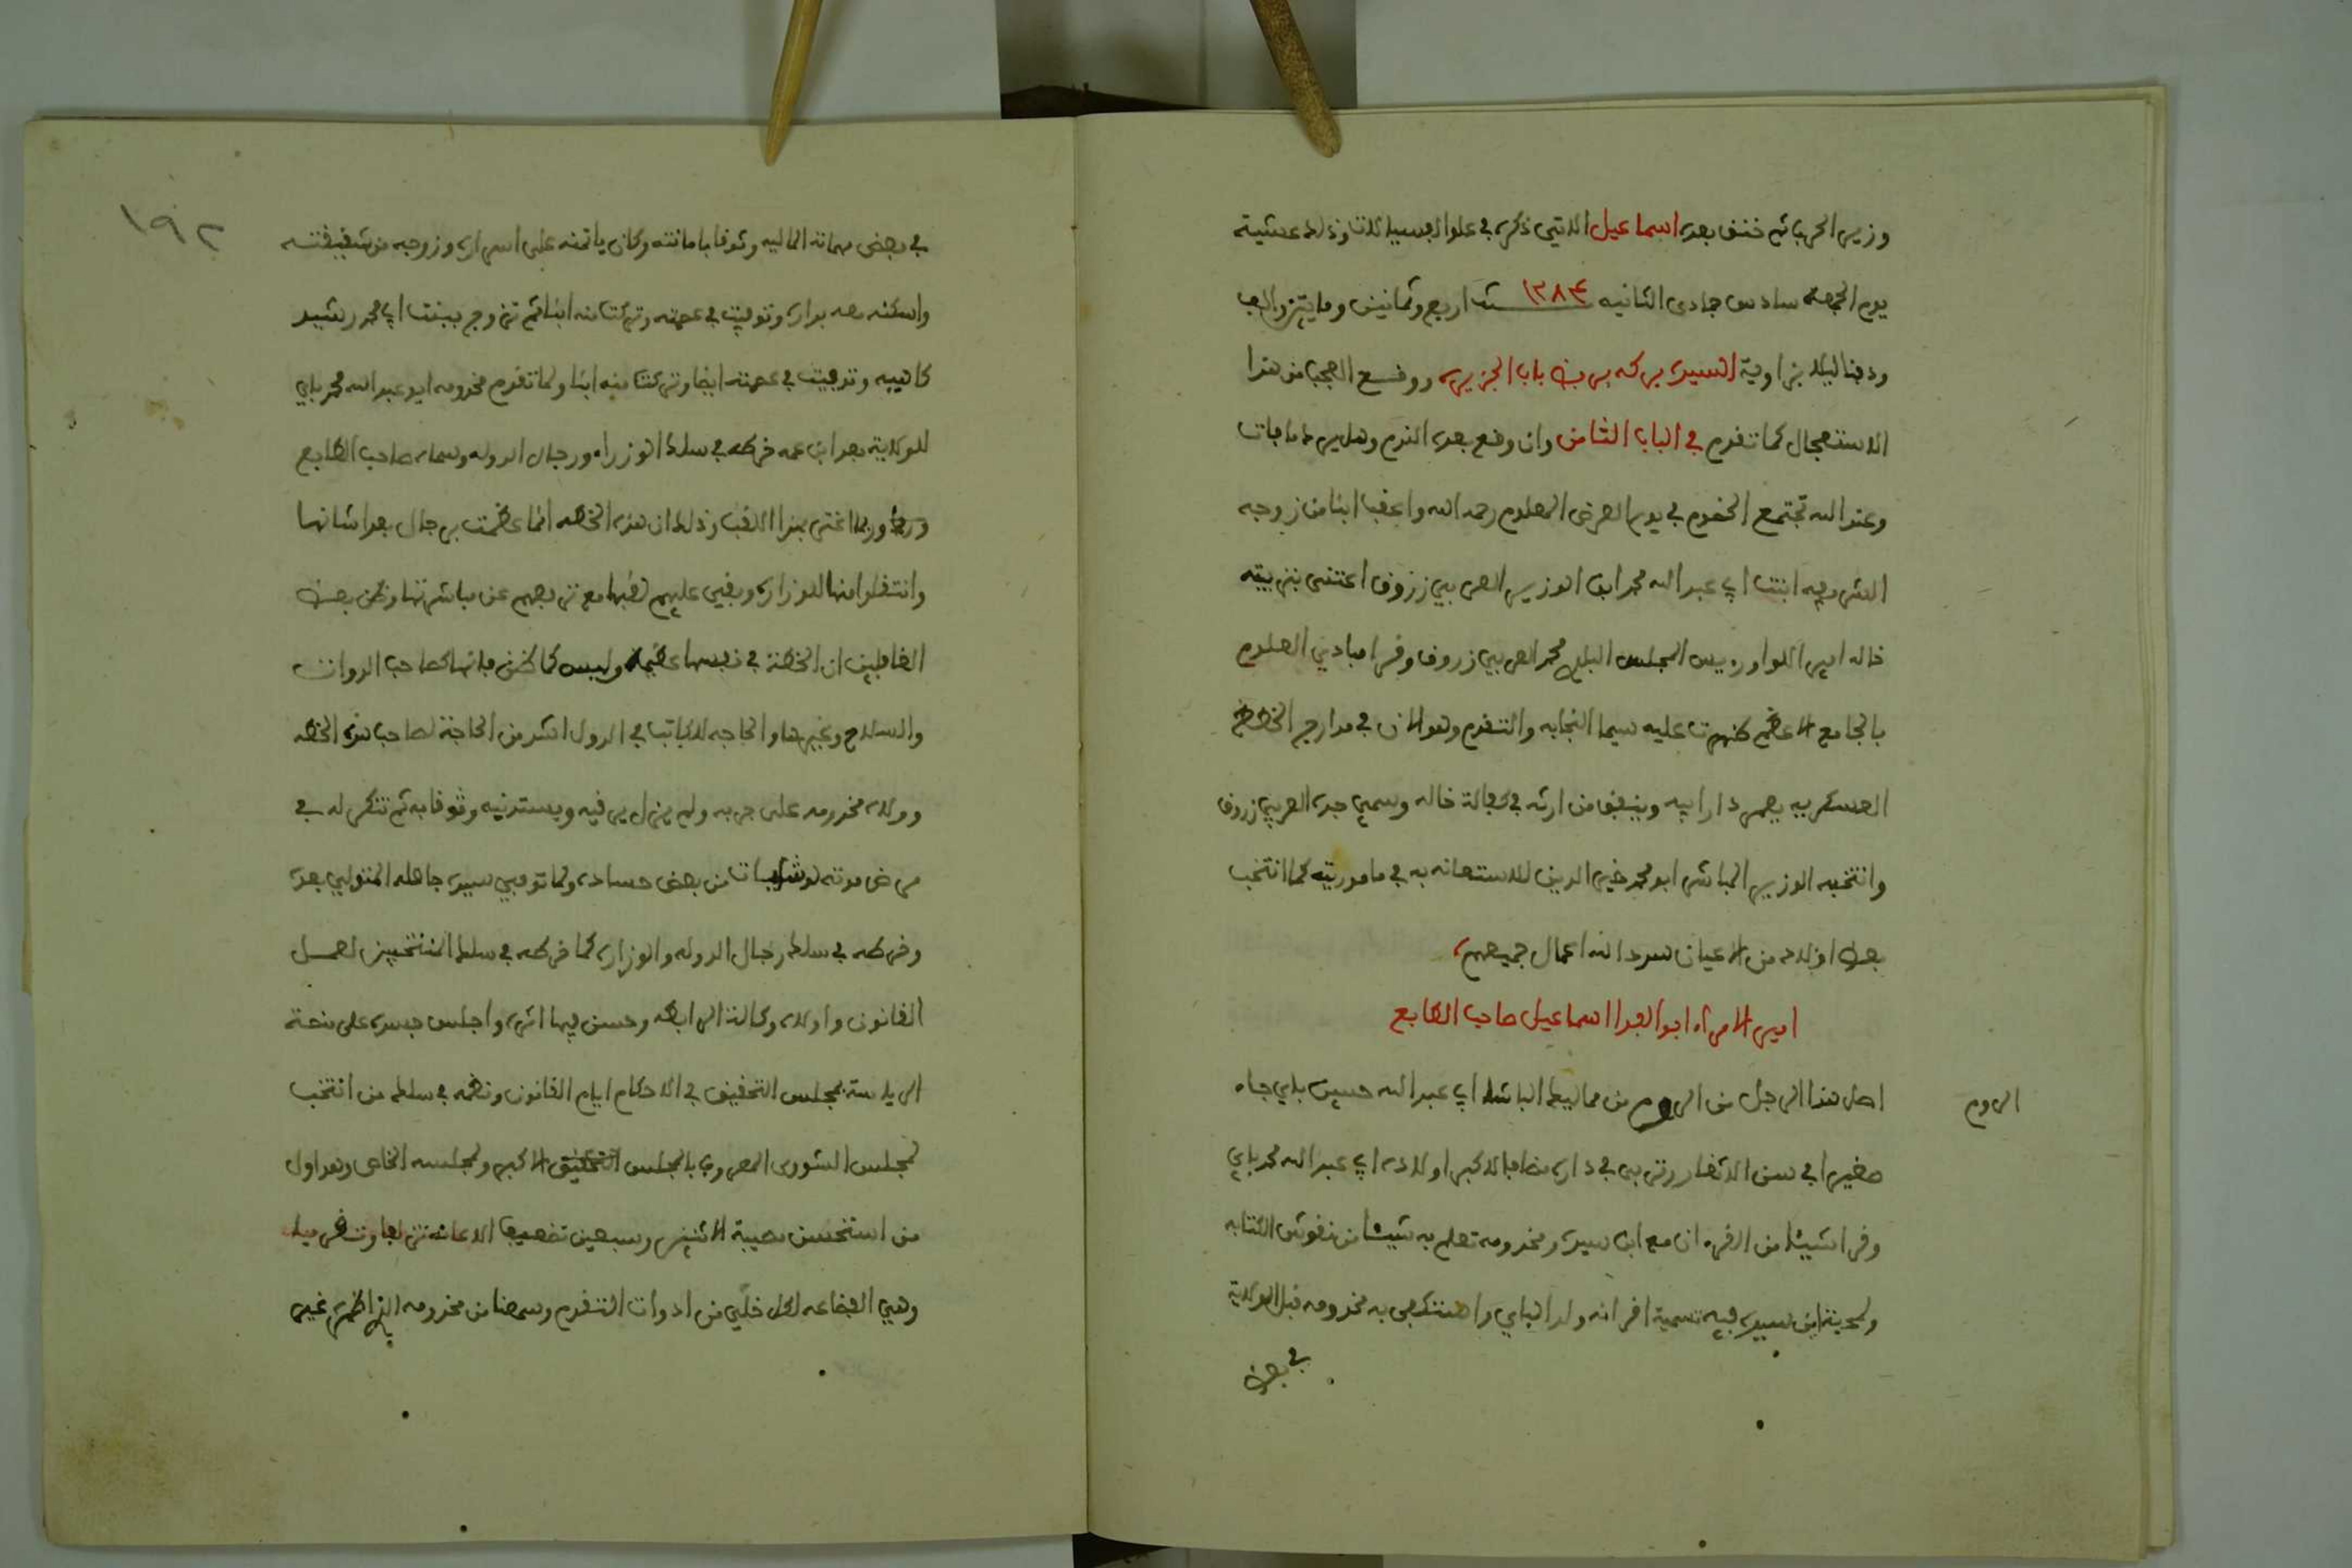 وزير الحرب ثم خنق بعده اسماعيل الاتي ذكره في علو العبدلية وذلك عشية
يوم الجمعة سادس جمادى الثانيه سنة ١٢٨٤ اربع وثمانين وما يتين والف
ودفنا ليلا بزاوية السيده بركه بربض باب الجزيره ووقع العجب من هذا
الاستعجال كما تقدم في الباب الثامن وان وقع بعده الندم وهل يرد ما فات
وعند الله تجتمع الخصوم في يوم العرض المعلوم رحمه الله واعقب ابنا من زوجه
الشريفه ابنة ابي عبد الله محمد ابن الوزير العربي زروق اعتنى بتربيته
خاله امير اللوا ورييس المجلس البلدي محمد العربي زروق وقرا مبادي العلوم
بالجامع الاعظم ظهرت عليه سيما النجابه والتقدم وهو الان في مدارج الخطط
العسكريه يعمر دار ابيه وينفق من ارثه في كفالة خاله وسمي جده العربي زروق
وانتخبه الوزير المباشر ابو محمد خير الدين للاستعانه به في ماموريته كما انتخب
بعض اولاده من الاعيان سدد الله اعمال جميعهم
امير الامراء ابو الفدا اسماعيل صاحب الطابع
اصل هذا الرجل من الروم من مماليك الباشا ابي عبد الله حسين باي جاء
الروم
صغيرا في سن الاثغار وتربى في داره مضافا لاكبر اولاده ابي عبد الله محمد باي
وقرا شيئا من القرءان مع ابن سيده ومخدومه تعلم به شيئا من نقوش الكتابه
ولمحبة ابن سيده فيه تسميه اقرانه ولد الباي واستكفى به مخدومه قبل الولاية
في بعض
١٩٢
في بعض مهماته الماليه وثوقا بامانته وكان ياتمنه على اسراره وزوجه من شقيقته
واسكنه معه بداره وتوفيت في عصمته وتركت منه ابنا ثم تزوج ببنت ابي محمد رشيد
كاهيه وتوفيت في عصمته ايضا وتركت منه ابنا ولما تقدم مخدومه ابو عبد الله محمد باي
للولاية بعد ابن عمه خرطه في سلك الوزراء ورجال الدوله وسماه صاحب الطابع
وربما اغتر بهذا اللقب وذلك ان هذه الخطه انما عظمت برجال بعد اشانها
وانتقلوا منها للوزاره وبقي عليهم لقبها مع ترفعهم عن مباشرتها وظن بعض
الغافلين ان الخطة في نفسها عظيمه وليس كما ظن فانها كصاحب الدواة
والسلاح وغيرها والحاجه للكاتب في الدول اشد من الحاجة لصاحب هذه الخطه
وولاه مخدومه على جربه ولم يزل يرقيه ويستدنيه وثوقا به ثم تنكر له في
مرض موته لوشايات من بعض حساده ولما توفي سيده جامله المتولي بعده
وخرطه في سلك رجال الدوله والوزاره كما خرطه في سلك المنتخبين لعمل
القانون واولاه وكالة الرابطه وحسن فيها اثره واجلس جسده على منصة
الرياسة بمجلس التحقيق في الاحكام ايام القانون ونظمه في سلك من انتخب
لمجلس الشورى المعروف بالمجلس الاكبر ولمجلسه الخاص وهو اول
من استحسن مصيبة الاثنين وسبعين تضعيف الاعانه تزلفا وتقربا
وهي البضاعه لكل خلي من ادوات التقدم وسمعنا من مخدومه غير